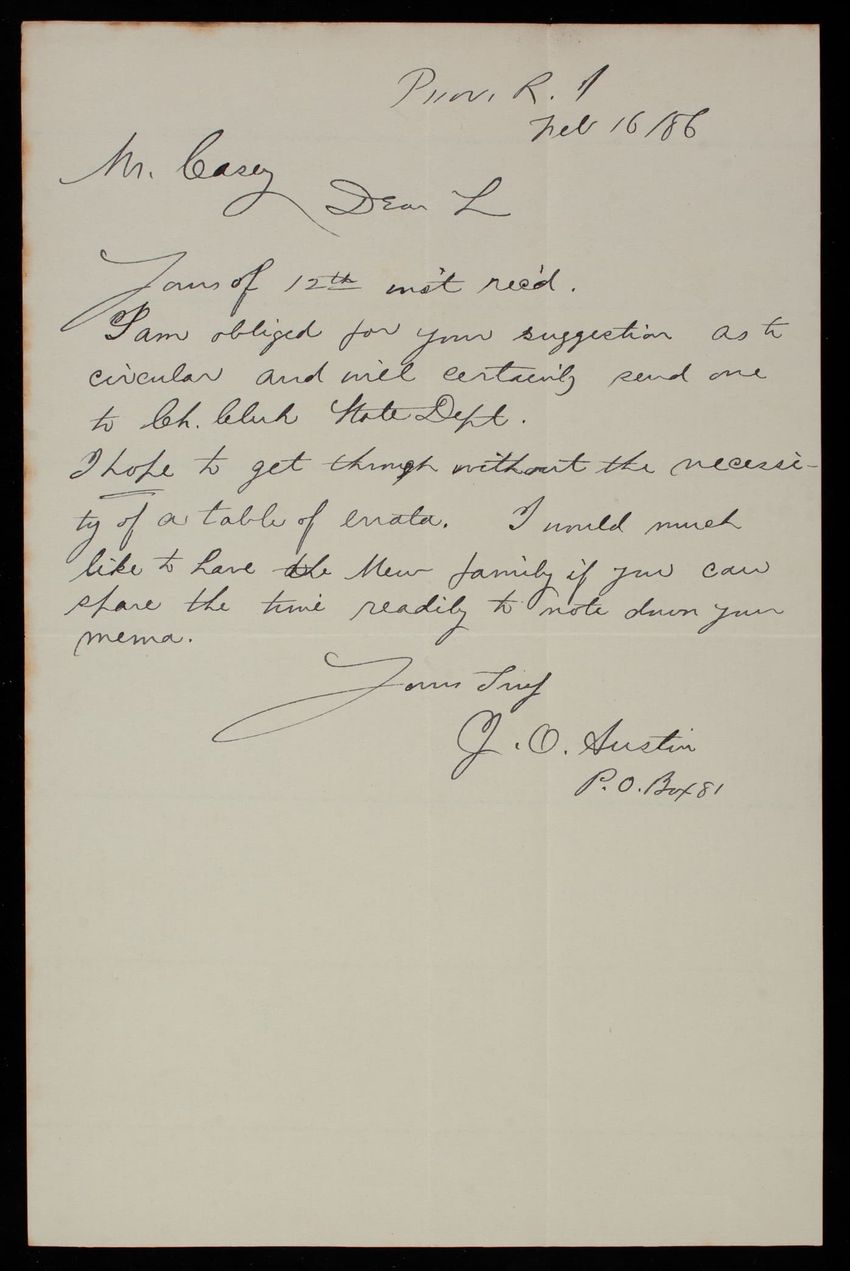 Prov. R. I
Feb 16/86
Mr. Casey
Dear
Yours of 12th inst rec'd.
I am obliged for your suggestion as to
circular and will certainly send one
to Ch. Clerk State Dept.
I hope to get through without the necessi-
ty of a table of errata. I would much
like to have the family if you can
spare the time readily to note down your
mema.
Yours Truly
J. O. Austin
P. O. Box 81